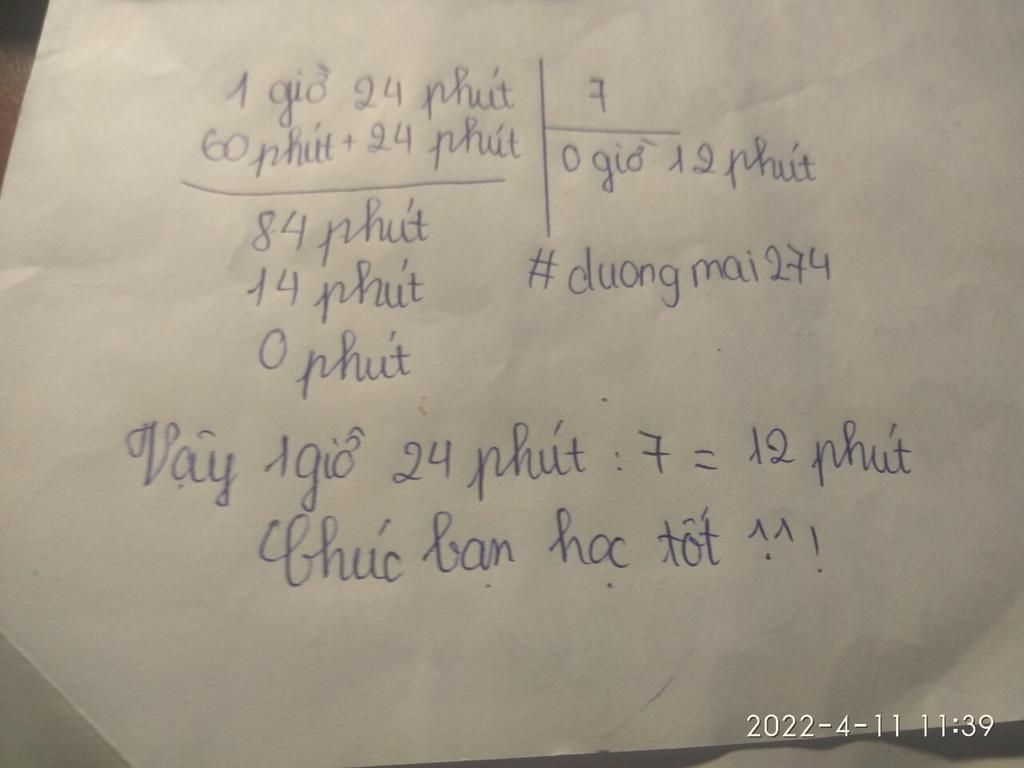 1 giờ 24 phút 7
60 phút + 24 phút 0 giờ 12 phút
84 phút
14 phút #duongmai274
0 phút
Vậy 1 giờ 24 phút : 7 = 12 phút
Chúc bạn học tốt ^.^ !
2022-4-11 11:39